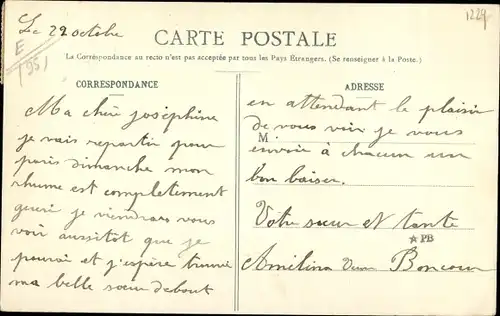 Le 22 octobre
1229
E
1951
CARTE POSTALE
La Correspondance au recto n'est pas acceptée par tous les Pays Étrangers. (Se renseigner à la Poste.)
CORRESPONDANCE
Ma chère joséphine
je vais repartir pour
paris dimanche mon
rhume est completement
gueri je viendrais vous
voir aussitôt que je
pouvoir et j'espère trouver
ma belle sœur debout
ADRESSE
en attendant le plaisir
de vous voir je vous
M
envoie à chacun un
bon baiser.
Votre sœur et tante
★PB
Boncour